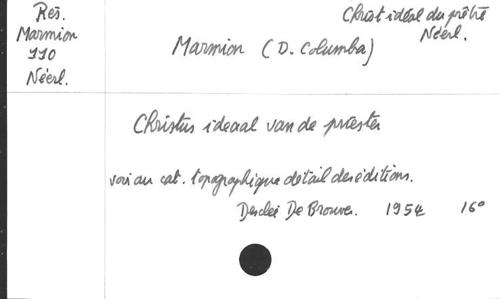 Rés.
Marmion
110
Néerl.
Christ idéal du prêtre
Néerl.
Marmion (D. Columba)
Christus ideaal van de priester
voir au cat. topographique détail des éditions.
Desclée De Brouwer. 1954 16°